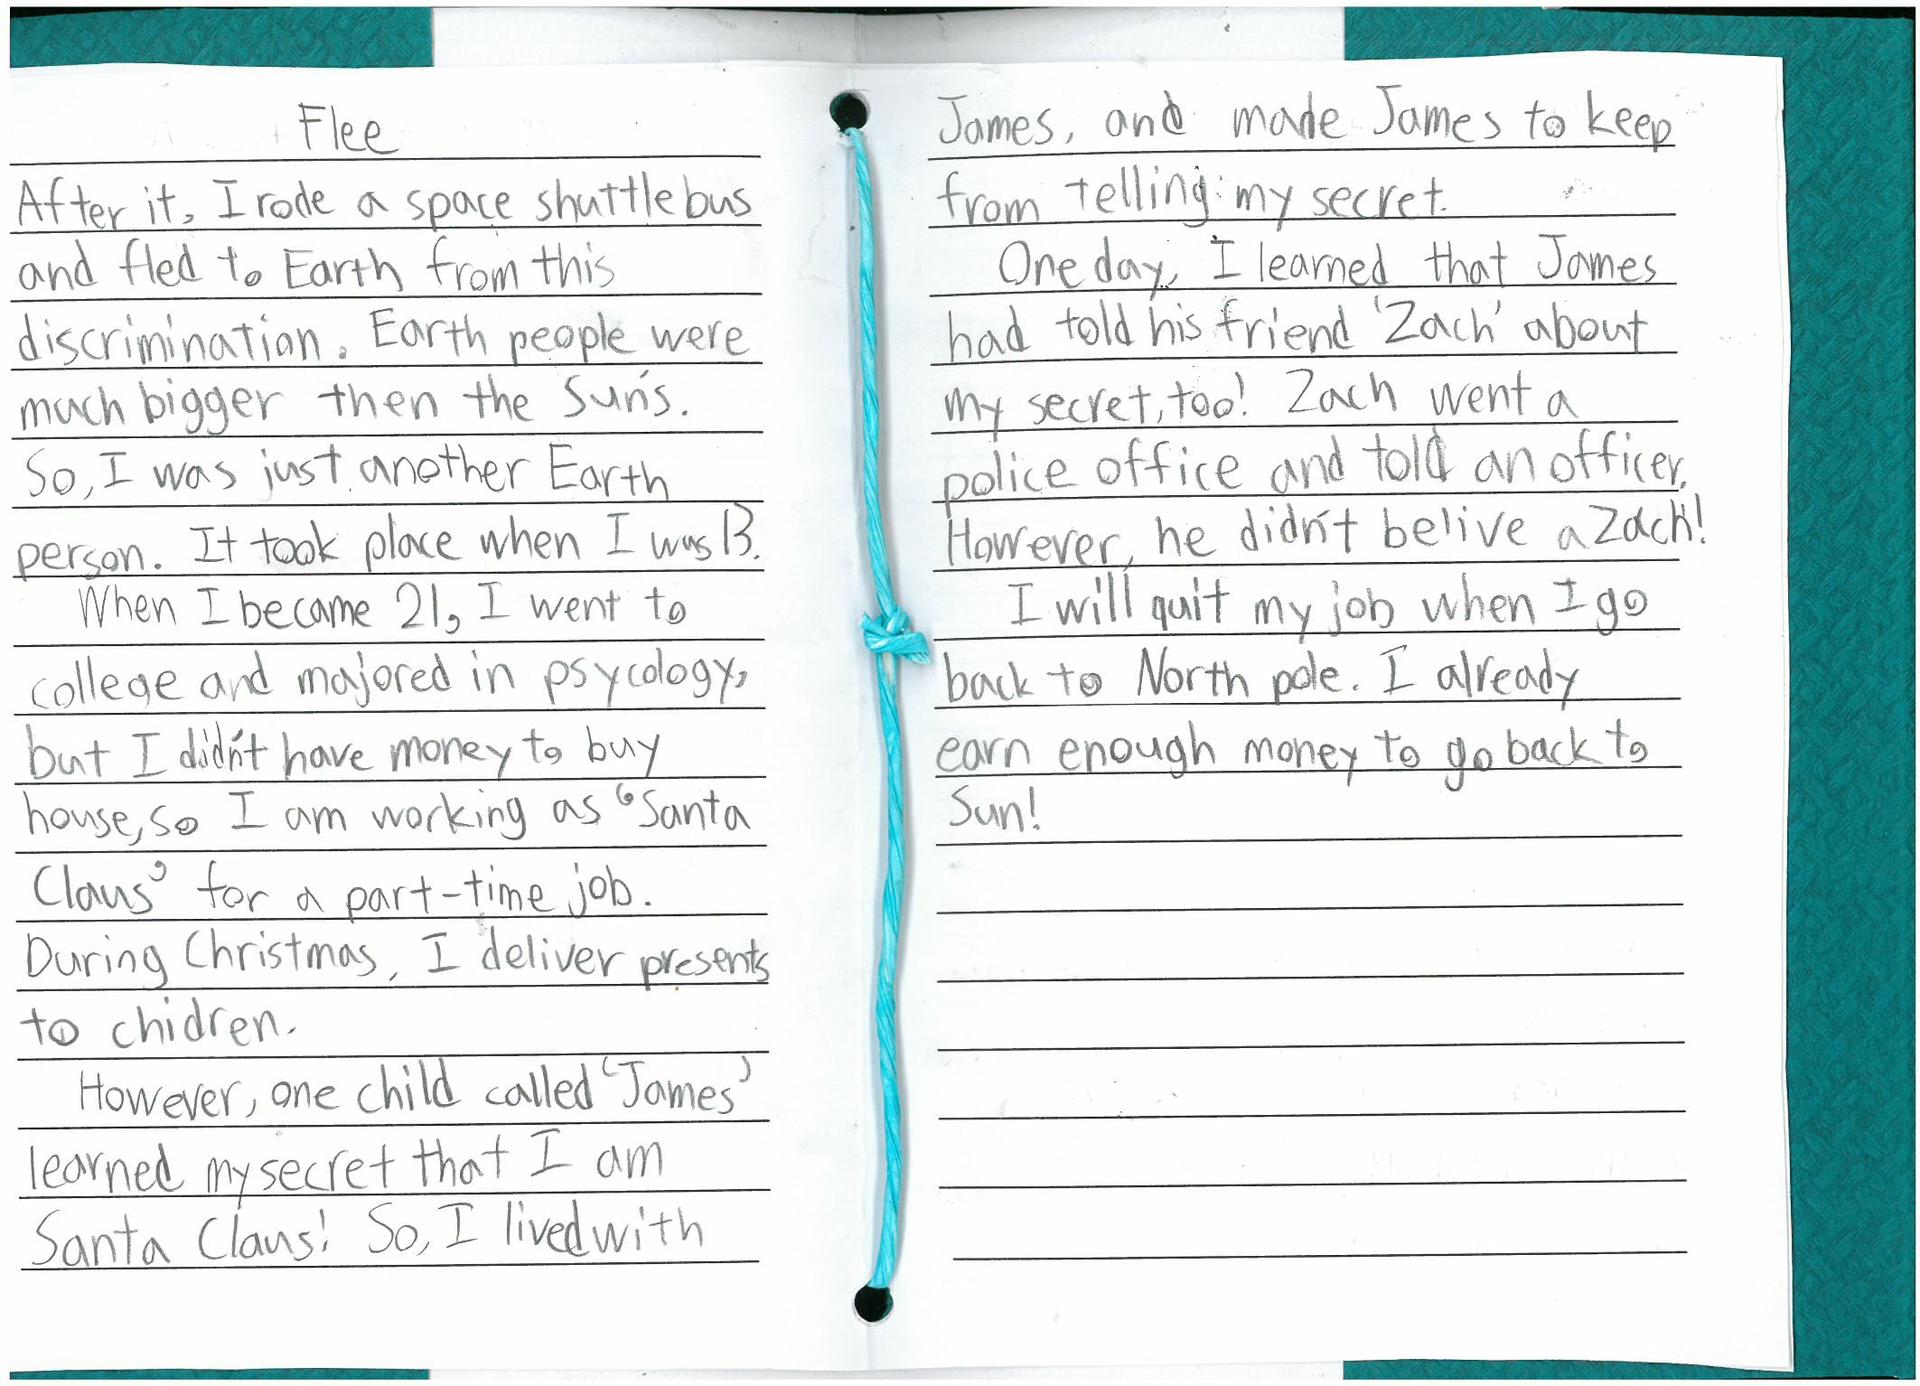 Flee
After it, I rode a space shuttle bus
and fled to Earth from this
discrimination. Earth people were
much bigger then the Sun's.
So, I was just another Earth
person. It took place when I was 13.
When I became 21, I went to
college and majored in psycology,
but I didn't have money to buy
house, so I am working as 'Santa
Claus' for a part-time job.
During Christmas, I deliver presents
to chidren.
However, one child called 'James'
learned my secret that I am
Santa Claus! So, I lived with
James, and made James to keep
from telling my secret.
One day, I learned that James
had told his friend 'Zach' about
my secret, too! Zach went a
police office and told an officer.
However, he didn't belive a Zach!
I will quit my job when I go
back to North pole. I already
earn enough money to go back to
Sun!